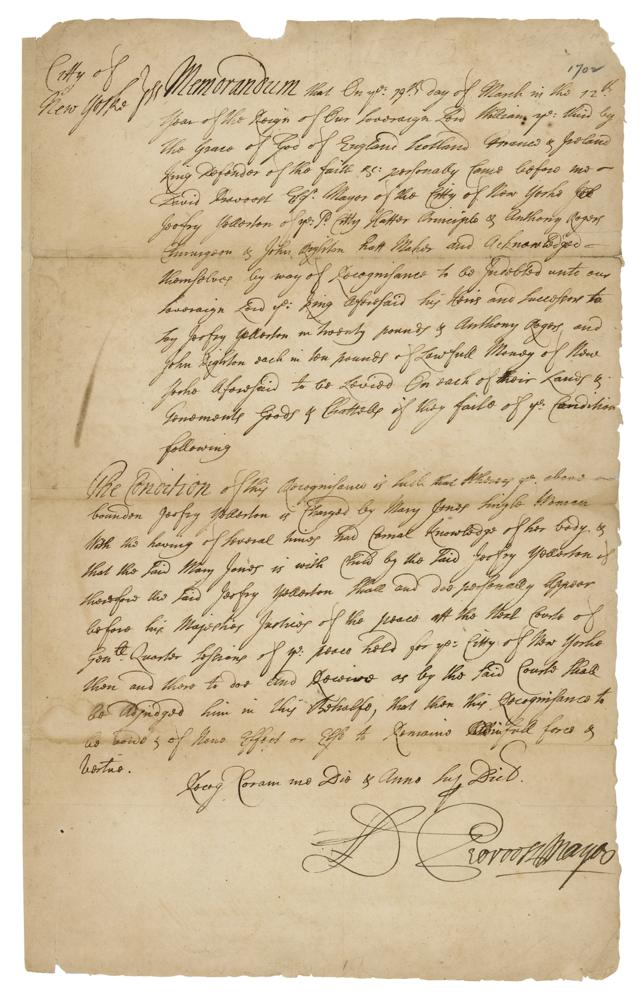 1702
Citty of
New Yorke ss Memorandum that On ye: 19th day of March in the 12th
Year of the Reign of Our Soveraign Lord William ye: third by
the Grace of God of England Scotland France & Ireland
King Defender of the faith &c: personally Came before me
David Provoost Esqr. Mayor of the Citty of New Yorke
Jeofry Yellerton of ye: Sd. Citty Hatter Principle & Anthony Rogers
Chirurgeon & John Hatt Maker and Acknowledged
themselves by way of Recognisance to be Indebted unto our
Soveraign Lord ye: King Aforesaid his Heirs and Successors to
say Jeofry Yellerton in twenty pounds & Anthony Rogers and
John each in ten pounds of Lawfull Money of New
Yorke Aforesaid to be Levied On each of their Lands &
Tenements Goods & Chattells if they faile of ye Condition
following
The Condition of this Recognisance is such that Whereas ye. above
bounden Jeofry Yellerton is Charged by Mary Jones Single Woman
With the having of Several times had Carnal Knowledge of her body, &
that the Said Mary Jones is with Child by the Said Jeofry Yellerton if
therefore the Said Jeofry Yellerton Shall and doe personally Appear
before his Majesties Justices of the peace att the Next Courte of
Genll. Quarter Sessions of ye: peace held for ye: Citty of New Yorke
then and there to doe and Receive as by the Said Courte Shall
be Adjudged him in this Behalfe, that then this Recognisance to
be void & of None Effect or Else to Remaine in full force &
vertue.
Recog Coram me Die & Anno Sup Dict.
D Provoost Mayor